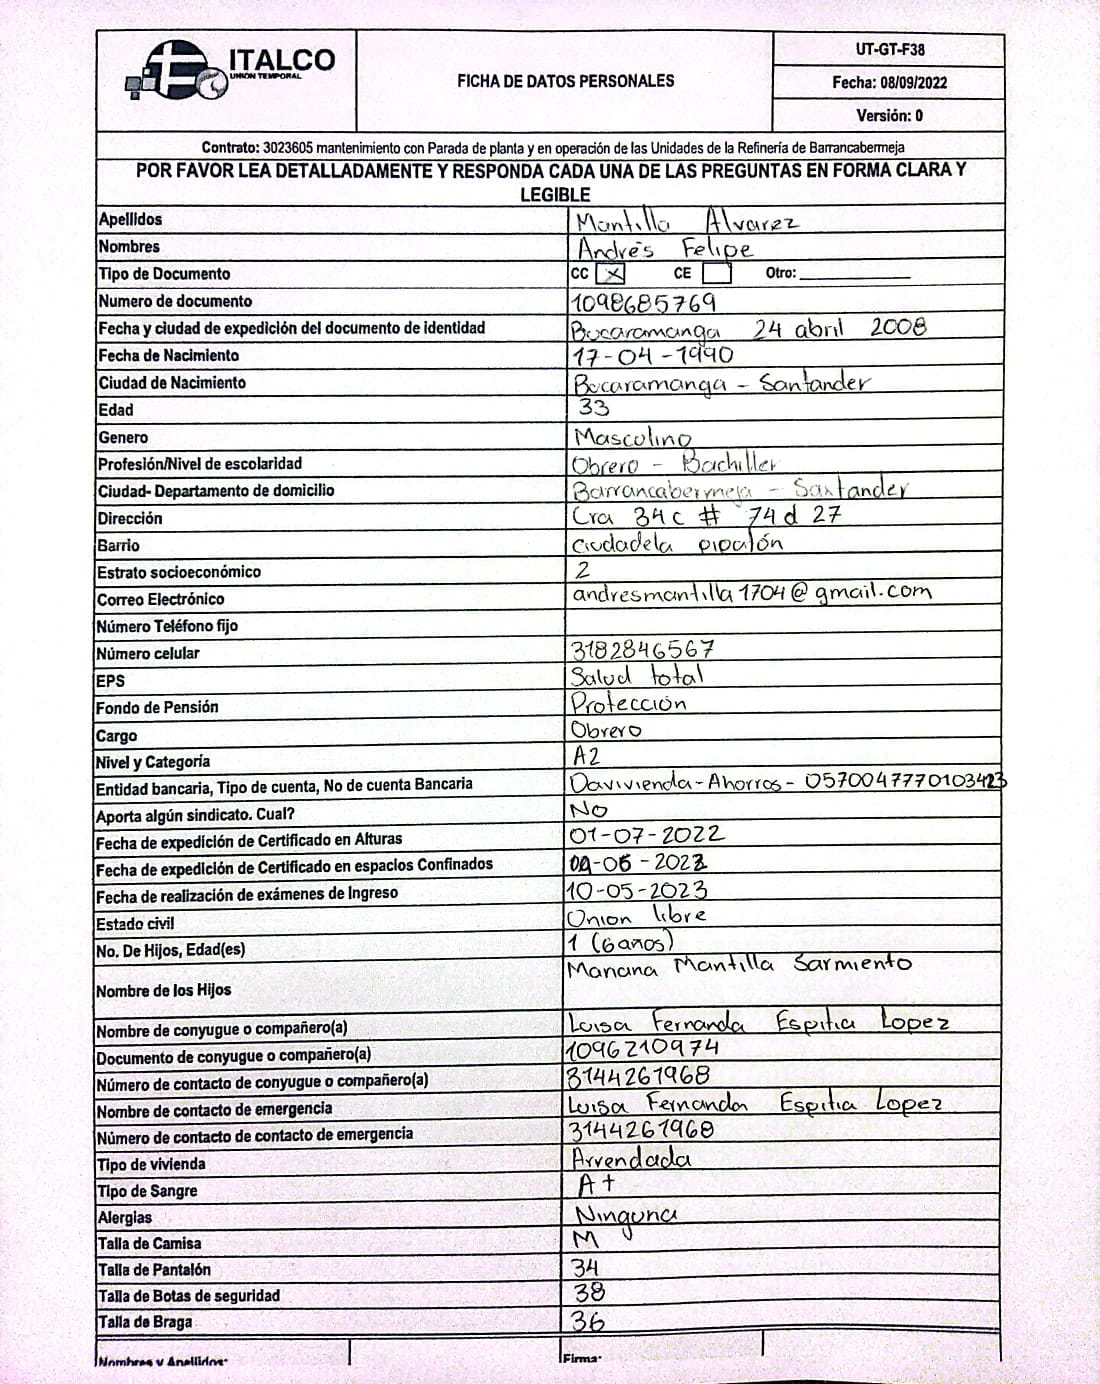 ITALCO
UNIÓN TEMPORAL
FICHA DE DATOS PERSONALES
UT-GT-F38
Fecha: 08/09/2022
Versión: 0
Contrato: 3023605 mantenimiento con Parada de planta y en operación de las Unidades de la Refinería de Barrancabermeja
POR FAVOR LEA DETALLADAMENTE Y RESPONDA CADA UNA DE LAS PREGUNTAS EN FORMA CLARA Y
LEGIBLE
Apellidos Mantilla Alvarez
Nombres Andrés Felipe
Tipo de Documento CC X CE Otro:
Numero de documento 1098685769
Fecha y ciudad de expedición del documento de identidad Bucaramanga 24 abril 2008
Fecha de Nacimiento 17-04-1990
Ciudad de Nacimiento Bucaramanga - Santander
Edad 33
Genero Masculino
Profesión/Nivel de escolaridad Obrero - Bachiller
Ciudad- Departamento de domicilio Barrancabermeja - Santander
Dirección Cra 34c # 74d 27
Barrio Ciudadela pipatón
Estrato socioeconómico 2
Correo Electrónico andresmantilla1704@gmail.com
Número Teléfono fijo
Número celular 3182846567
EPS Salud total
Fondo de Pensión Protección
Cargo Obrero
Nivel y Categoría A2
Entidad bancaria, Tipo de cuenta, No de cuenta Bancaria Davivienda-Ahorros-0570047770103423
Aporta algún sindicato. Cual? No
Fecha de expedición de Certificado en Alturas 01-07-2022
Fecha de expedición de Certificado en espacios Confinados
Fecha de realización de exámenes de Ingreso 10-05-2023
Estado civil Union libre
No. De Hijos, Edad(es) 1 (6 anos)
Nombre de los Hijos Manana Mantilla Sarmiento
Nombre de conyugue o compañero(a) Luisa Fernanda Espitia Lopez
Documento de conyugue o compañero(a) 1096210974
Número de contacto de conyugue o compañero(a) 3144261968
Nombre de contacto de emergencia Luisa Fernanda Espitia Lopez
Número de contacto de contacto de emergencia 3144261968
Tipo de vivienda Arrendada
Tipo de Sangre A+
Alergias Ninguna
Talla de Camisa M
Talla de Pantalón 34
Talla de Botas de seguridad 38
Talla de Braga 36
Nombres y Apellidos: Firma: